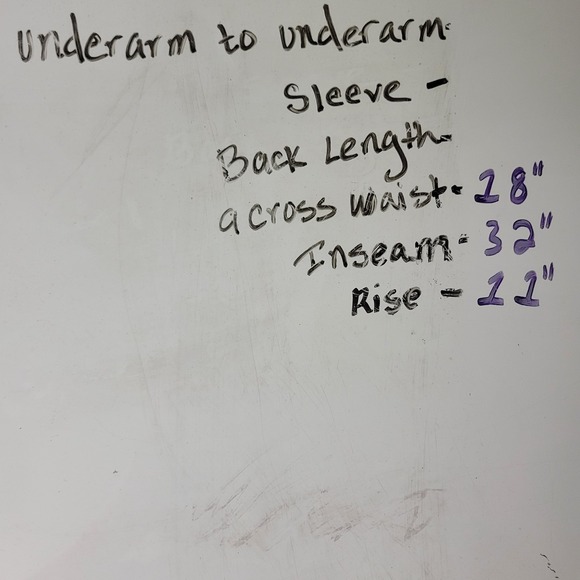 underarm to underarm-
Sleeve -
Back Length-
across waist- 18"
Inseam- 32"
Rise - 11"